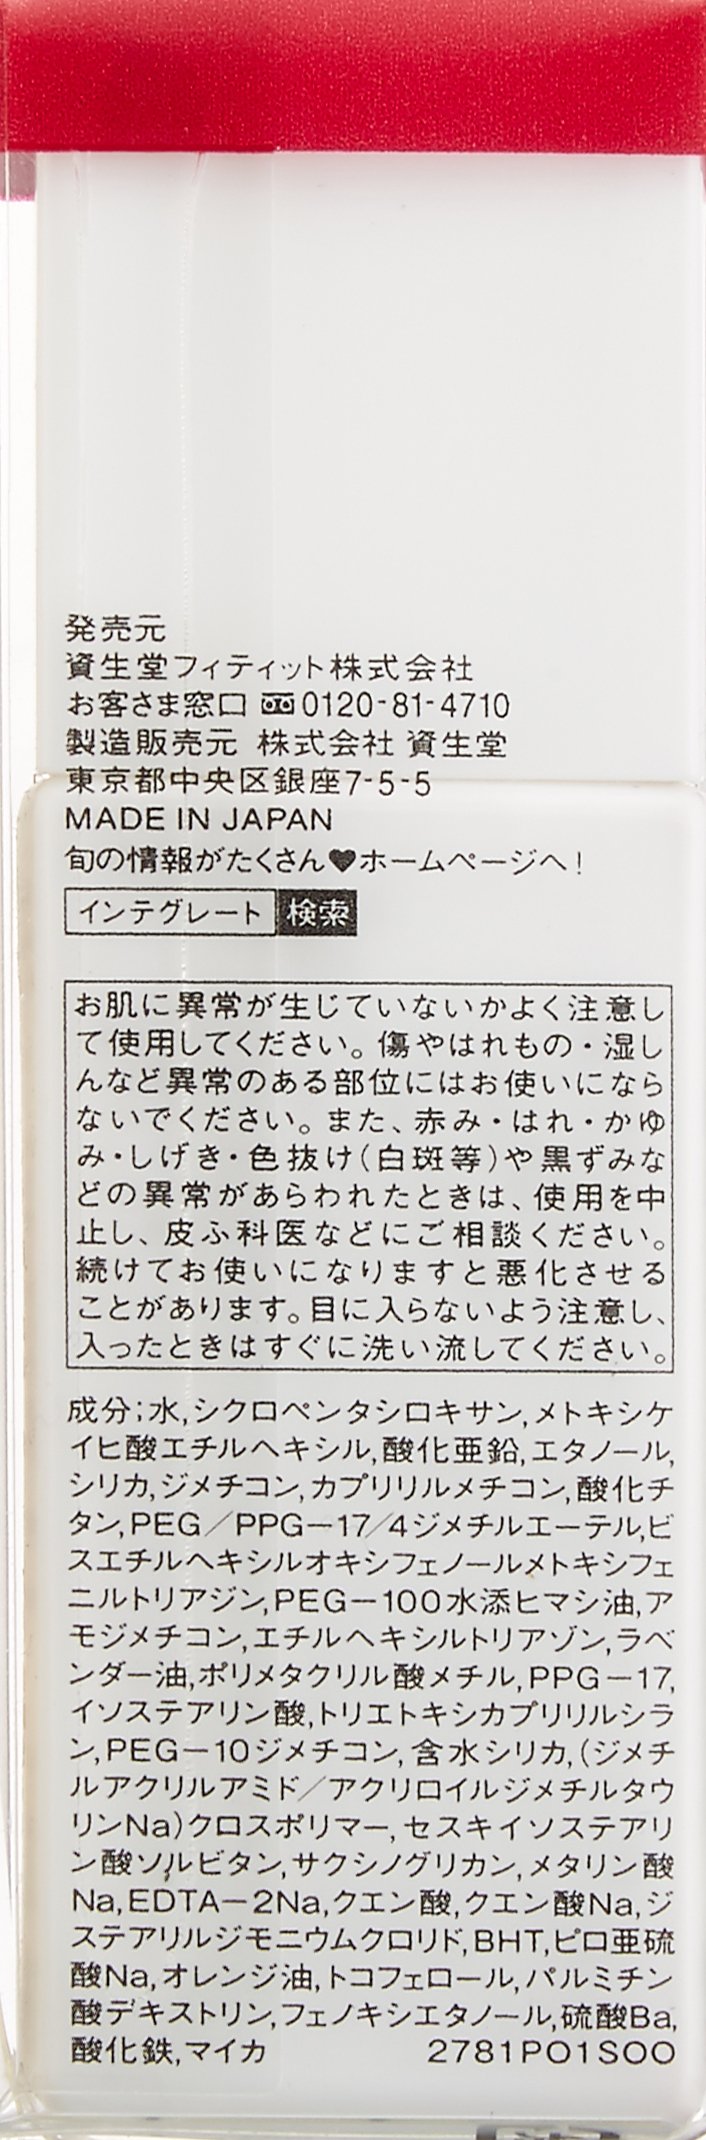 発売元
資生堂フィティット株式会社
お客さま窓口 0120-81-4710
製造販売元 株式会社 資生堂
東京都中央区銀座7-5-5
MADE IN JAPAN
旬の情報がたくさん♥ホームページへ!
インテグレート 検索
お肌に異常が生じていないかよく注意し
て使用してください。傷やはれもの・湿し
んなど異常のある部位にはお使いになら
ないでください。また、赤み・はれ・かゆ
み・しげき・色抜け(白斑等)や黒ずみな
どの異常があらわれたときは、使用を中
止し、皮ふ科医などにご相談ください。
続けてお使いになりますと悪化させる
ことがあります。目に入らないよう注意し、
入ったときはすぐに洗い流してください。
成分;水,シクロペンタシロキサン,メトキシケ
イヒ酸エチルヘキシル,酸化亜鉛,エタノール,
シリカ,ジメチコン,カプリリルメチコン,酸化チ
タン,PEG/PPG-17/4ジメチルエーテル,ビ
スエチルヘキシルオキシフェノールメトキシフェ
ニルトリアジン,PEG-100水添ヒマシ油,ア
モジメチコン,エチルヘキシルトリアゾン,ラベ
ンダー油,ポリメタクリル酸メチル,PPG-17,
イソステアリン酸,トリエトキシカプリリルシラ
ン,PEG-10ジメチコン,含水シリカ,(ジメチ
ルアクリルアミド/アクリロイルジメチルタウ
リンNa)クロスポリマー,セスキイソステアリ
ン酸ソルビタン,サクシノグリカン,メタリン酸
Na,EDTA-2Na,クエン酸,クエン酸Na,ジ
ステアリルジモニウムクロリド,BHT,ピロ亜硫
酸Na,オレンジ油,トコフェロール,パルミチン
酸デキストリン,フェノキシエタノール,硫酸Ba,
酸化鉄,マイカ 2781P01S00